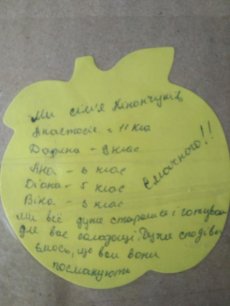 Ми сім'я Кінончуків
Анастасія - 11 клас
Дарина - 8 клас
Яна - 6 клас
Діана - 5 клас
Віка - 3 клас
Смачного!!
Ми всі дуже старались і готували
для вас солодощі. Дуже сподіва
ємось, що вам вони
посмакують